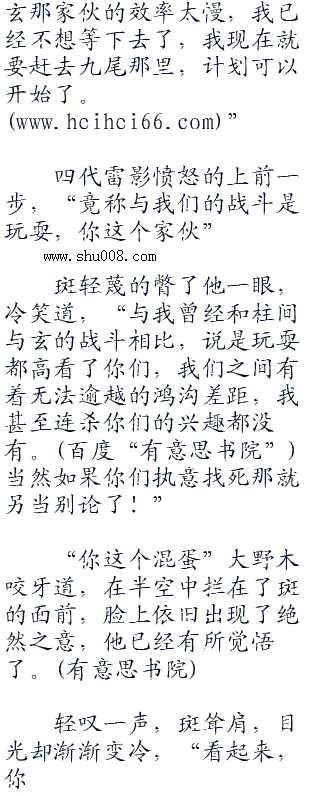 玄那家伙的效率太漫，我已
经不想等下去了，我现在就
要赶去九尾那里，计划可以
开始了。
(www.hcihci66.com)”
四代雷影愤怒的上前一
步，“竟称与我们的战斗是
玩耍，你这个家伙”
www.shu008.com
斑轻蔑的瞥了他一眼，
冷笑道，“与我曾经和柱间
与玄的战斗相比，说是玩耍
都高看了你们，我们之间有
着无法逾越的鸿沟差距，我
甚至连杀你们的兴趣都没
有。(百度“有意思书院”)
当然如果你们执意找死那就
另当别论了！”
“你这个混蛋”大野木
咬牙道，在半空中拦在了斑
的面前，脸上依旧出现了绝
然之意，他已经有所觉悟
了。(有意思书院)
轻叹一声，斑耸肩，目
光却渐渐变冷，“看起来，
你